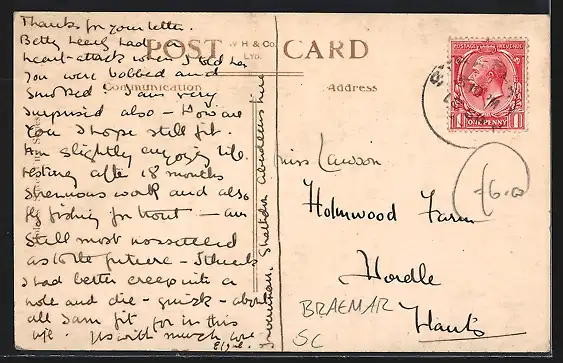 Thanks for your letter.
Betty nearly had a
heart-attack when I told her
you were bobbed and
smoked - I am very
surprised also - How are
you I hope still fit.
Am slightly enjoying life.
resting after 18 months
strenuous work and also
fly fishing for trout - am
still most unsettled
as to the future - I think
I had better creep into a
hole and die - quick - about
all I am fit for in this
life.
with much love
POST CARD
W H & Co.
Communication
Address
POSTAGE REVENUE
ONE PENNY
Miss Lawson
Holmwood Farm
Hordle
Hants
BRAEMAR
SC